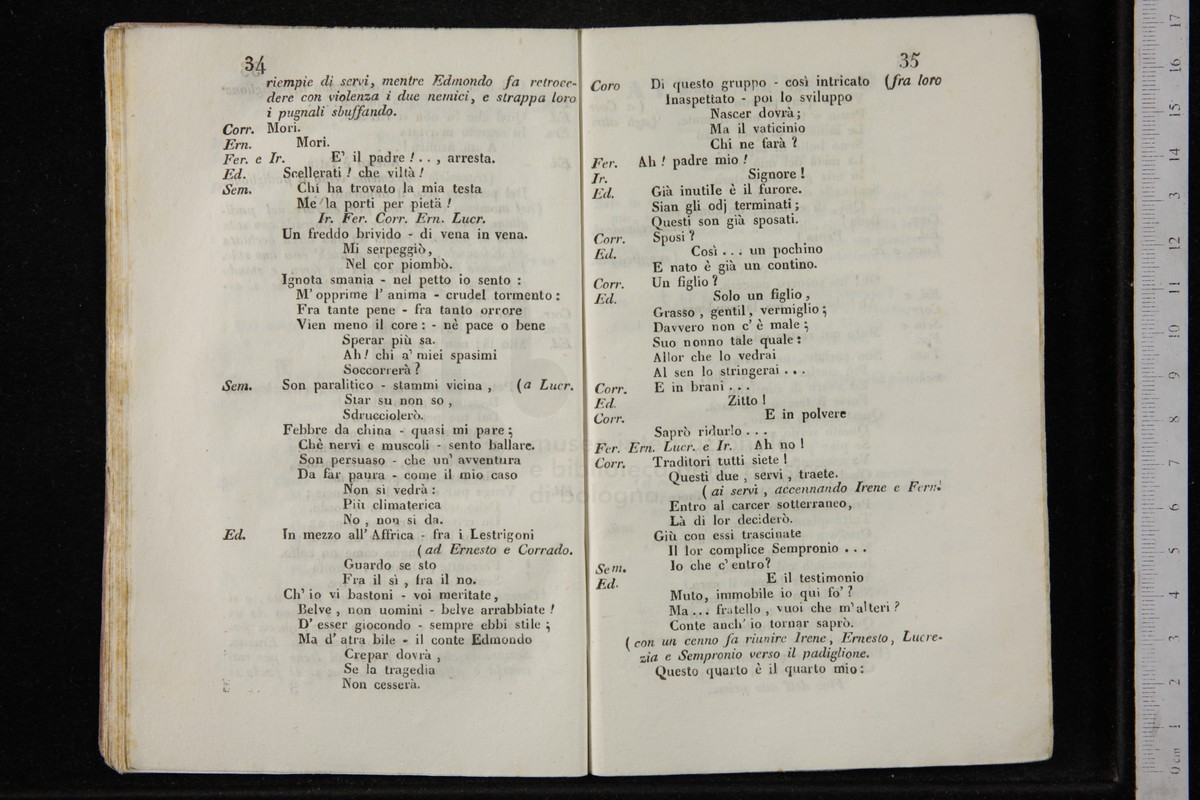 34
riempie di servi, mentre Edmondo fa retroce-
dere con violenza i due nemici, e strappa loro
i pugnali sbuffando.
Corr. Mori.
Ern. Mori.
Fer. e Ir. E' il padre ! . . , arresta.
Ed. Scellerati ! che viltà !
Sem. Chi ha trovato la mia testa
Me la porti per pietà !
Ir. Fer. Corr. Ern. Lucr.
Un freddo brivido - di vena in vena.
Mi serpeggiò,
Nel cor piombò.
Ignota smania - nel petto io sento :
M' opprime l' anima - crudel tormento :
Fra tante pene - fra tanto orrore
Vien meno il core : - nè pace o bene
Sperar più sa.
Ah ! chi a' miei spasimi
Soccorrerà ?
Sem. Son paralitico - stammi vicina , (a Lucr.
Star su non so ,
Sdrucciolerò.
Febbre da china - quasi mi pare ;
Chè nervi e muscoli - sento ballare.
Son persuaso - che un' avventura
Da far paura - come il mio caso
Non si vedrà :
Più climaterica
No , non si da.
Ed. In mezzo all' Affrica - fra i Lestrigoni
( ad Ernesto e Corrado.
Guardo se sto
Fra il sì , fra il no.
Ch' io vi bastoni - voi meritate,
Belve , non uomini - belve arrabbiate !
D' esser giocondo - sempre ebbi stile ;
Ma d' atra bile - il conte Edmondo
Crepar dovrà ,
Se la tragedia
Non cesserà.
35
Coro Di questo gruppo - così intricato (fra loro
Inaspettato - poi lo sviluppo
Nascer dovrà ;
Ma il vaticinio
Chi ne farà ?
Fer. Ah ! padre mio !
Ir. Signore !
Ed. Già inutile è il furore.
Sian gli odj terminati ;
Questi son già sposati.
Corr. Sposi ?
Ed. Così . . . un pochino
E nato è già un contino.
Corr. Un figlio ?
Ed. Solo un figlio ,
Grasso , gentil , vermiglio ;
Davvero non c' è male ;
Suo nonno tale quale :
Allor che lo vedrai
Al sen lo stringerai . . .
Corr. E in brani . . .
Ed. Zitto !
Corr. E in polvere
Saprò ridurlo . . .
Fer. Ern. Lucr. e Ir. Ah no !
Corr. Traditori tutti siete !
Questi due , servi , traete.
( ai servi , accennando Irene e Fern.
Entro al carcer sotterraneo,
Là di lor deciderò.
Giù con essi trascinate
Il lor complice Sempronio . . .
Sem. Io che c' entro?
Ed. E il testimonio
Muto, immobile io qui fo' ?
Ma . . . fratello , vuoi che m' alteri ?
Conte anch' io tornar saprò.
( con un cenno fa riunire Irene, Ernesto, Lucre-
zia e Sempronio verso il padiglione.
Questo quarto è il quarto mio :
museo
e biblioteca
di bologna
0 cm 1 2 3 4 5 6 7 8 9 10 11 12 13 14 15 16 17